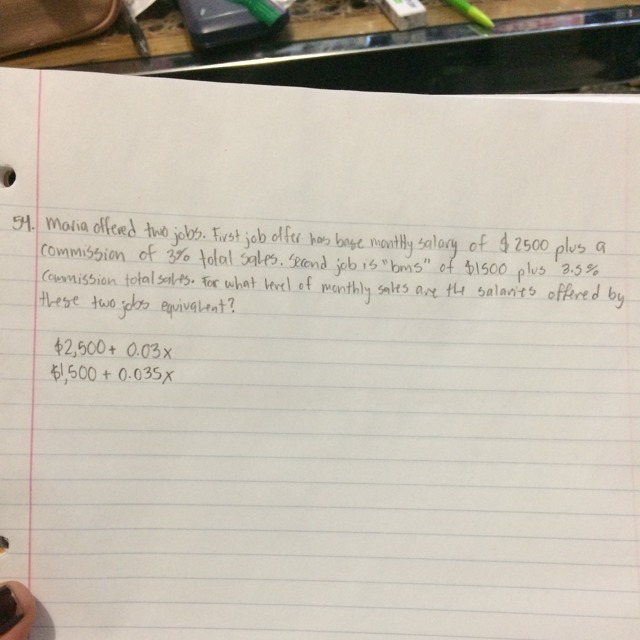 54. Maria offered two jobs. First job offer has base monthly salary of $2500 plus a
commission of 3% total sales. Second job is "bms" of $1500 plus 3.5%
commission total sales. For what level of monthly sales are the salaries offered by
these two jobs equivalent?
$2,500 + 0.03x
$1,500 + 0.035x